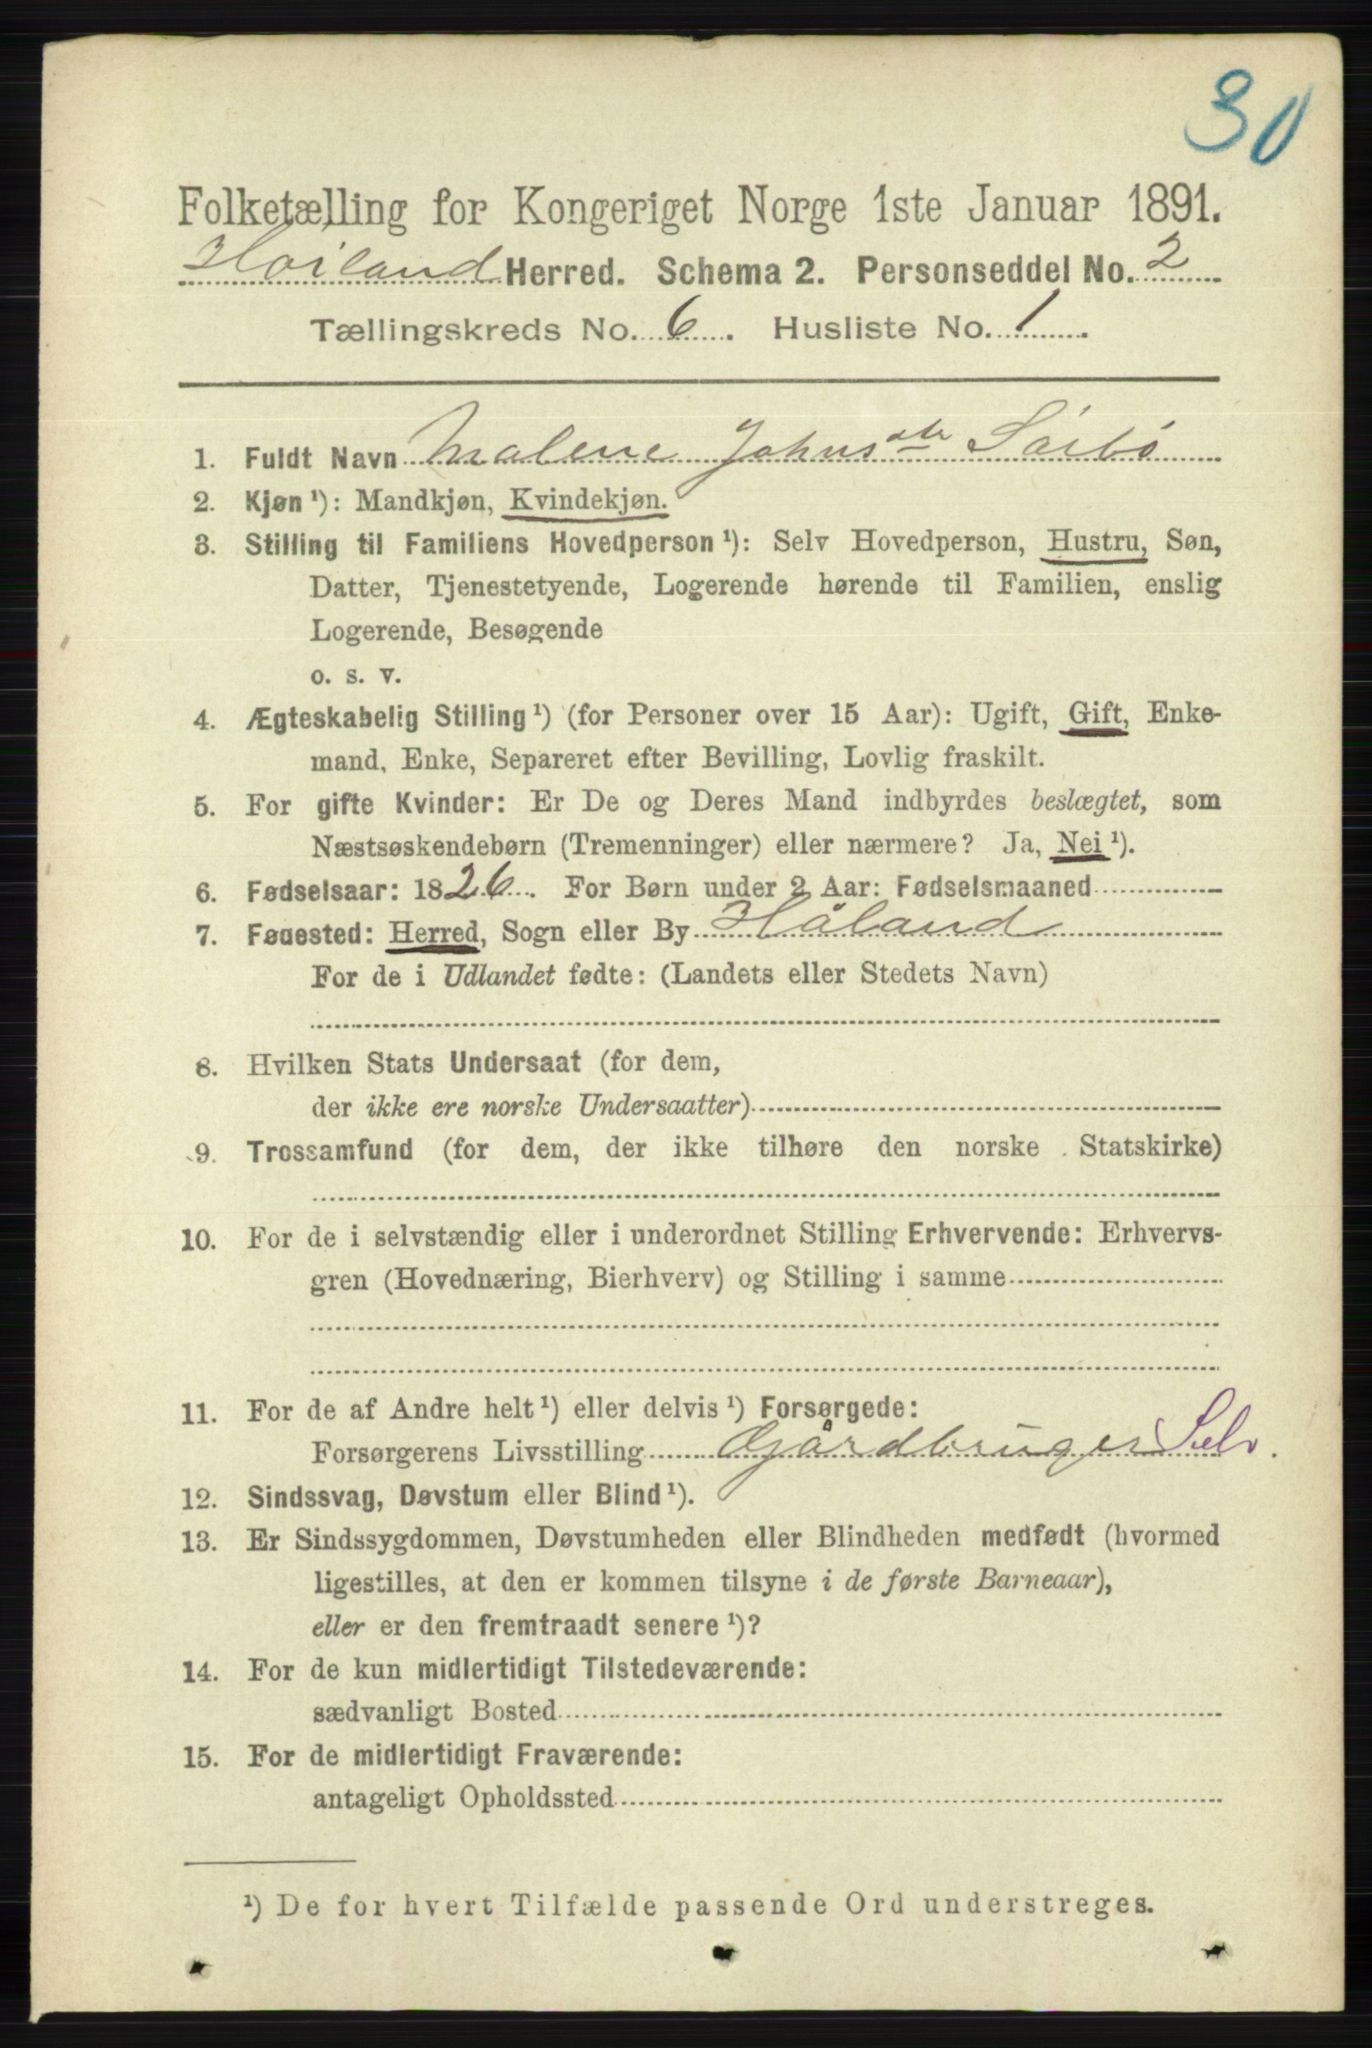 30
Folketælling for Kongeriget Norge 1ste Januar 1891.
Høiland Herred. Schema 2. Personseddel No. 2
Tællingskreds No. 6. Husliste No. 1
1. Fuldt Navn Malene Johnsdtr Sørbø
2. Kjøn¹): Mandkjøn, Kvindekjøn.
3. Stilling til Familiens Hovedperson¹): Selv Hovedperson, Hustru, Søn,
Datter, Tjenestetyende, Logerende hørende til Familien, enslig
Logerende, Besøgende
o. s. v.
4. Ægteskabelig Stilling¹) (for Personer over 15 Aar): Ugift, Gift, Enke-
mand, Enke, Separeret efter Bevilling, Lovlig fraskilt.
5. For gifte Kvinder: Er De og Deres Mand indbyrdes beslægtet, som
Næstsøskendebørn (Tremenninger) eller nærmere? Ja, Nei¹).
6. Fødselsaar: 1826. For Børn under 2 Aar: Fødselsmaaned
7. Føuested: Herred, Sogn eller By Håland
For de i Udlandet fødte: (Landets eller Stedets Navn)
8. Hvilken Stats Undersaat (for dem,
der ikke ere norske Undersaatter)
9. Trossamfund (for dem, der ikke tilhøre den norske Statskirke)
10. For de i selvstændig eller i underordnet Stilling Erhvervende: Erhvervs-
gren (Hovednæring, Bierhverv) og Stilling i samme
11. For de af Andre helt¹) eller delvis¹) Forsørgede:
Forsørgerens Livsstilling Gjårdbruger Selv.
12. Sindssvag, Døvstum eller Blind¹).
13. Er Sindssygdommen, Døvstumheden eller Blindheden medfødt (hvormed
ligestilles, at den er kommen tilsyne i de første Barneaar),
eller er den fremtraadt senere¹)?
14. For de kun midlertidigt Tilstedeværende:
sædvanligt Bosted
15. For de midlertidigt Fraværende:
antageligt Opholdssted
¹) De for hvert Tilfælde passende Ord understreges.